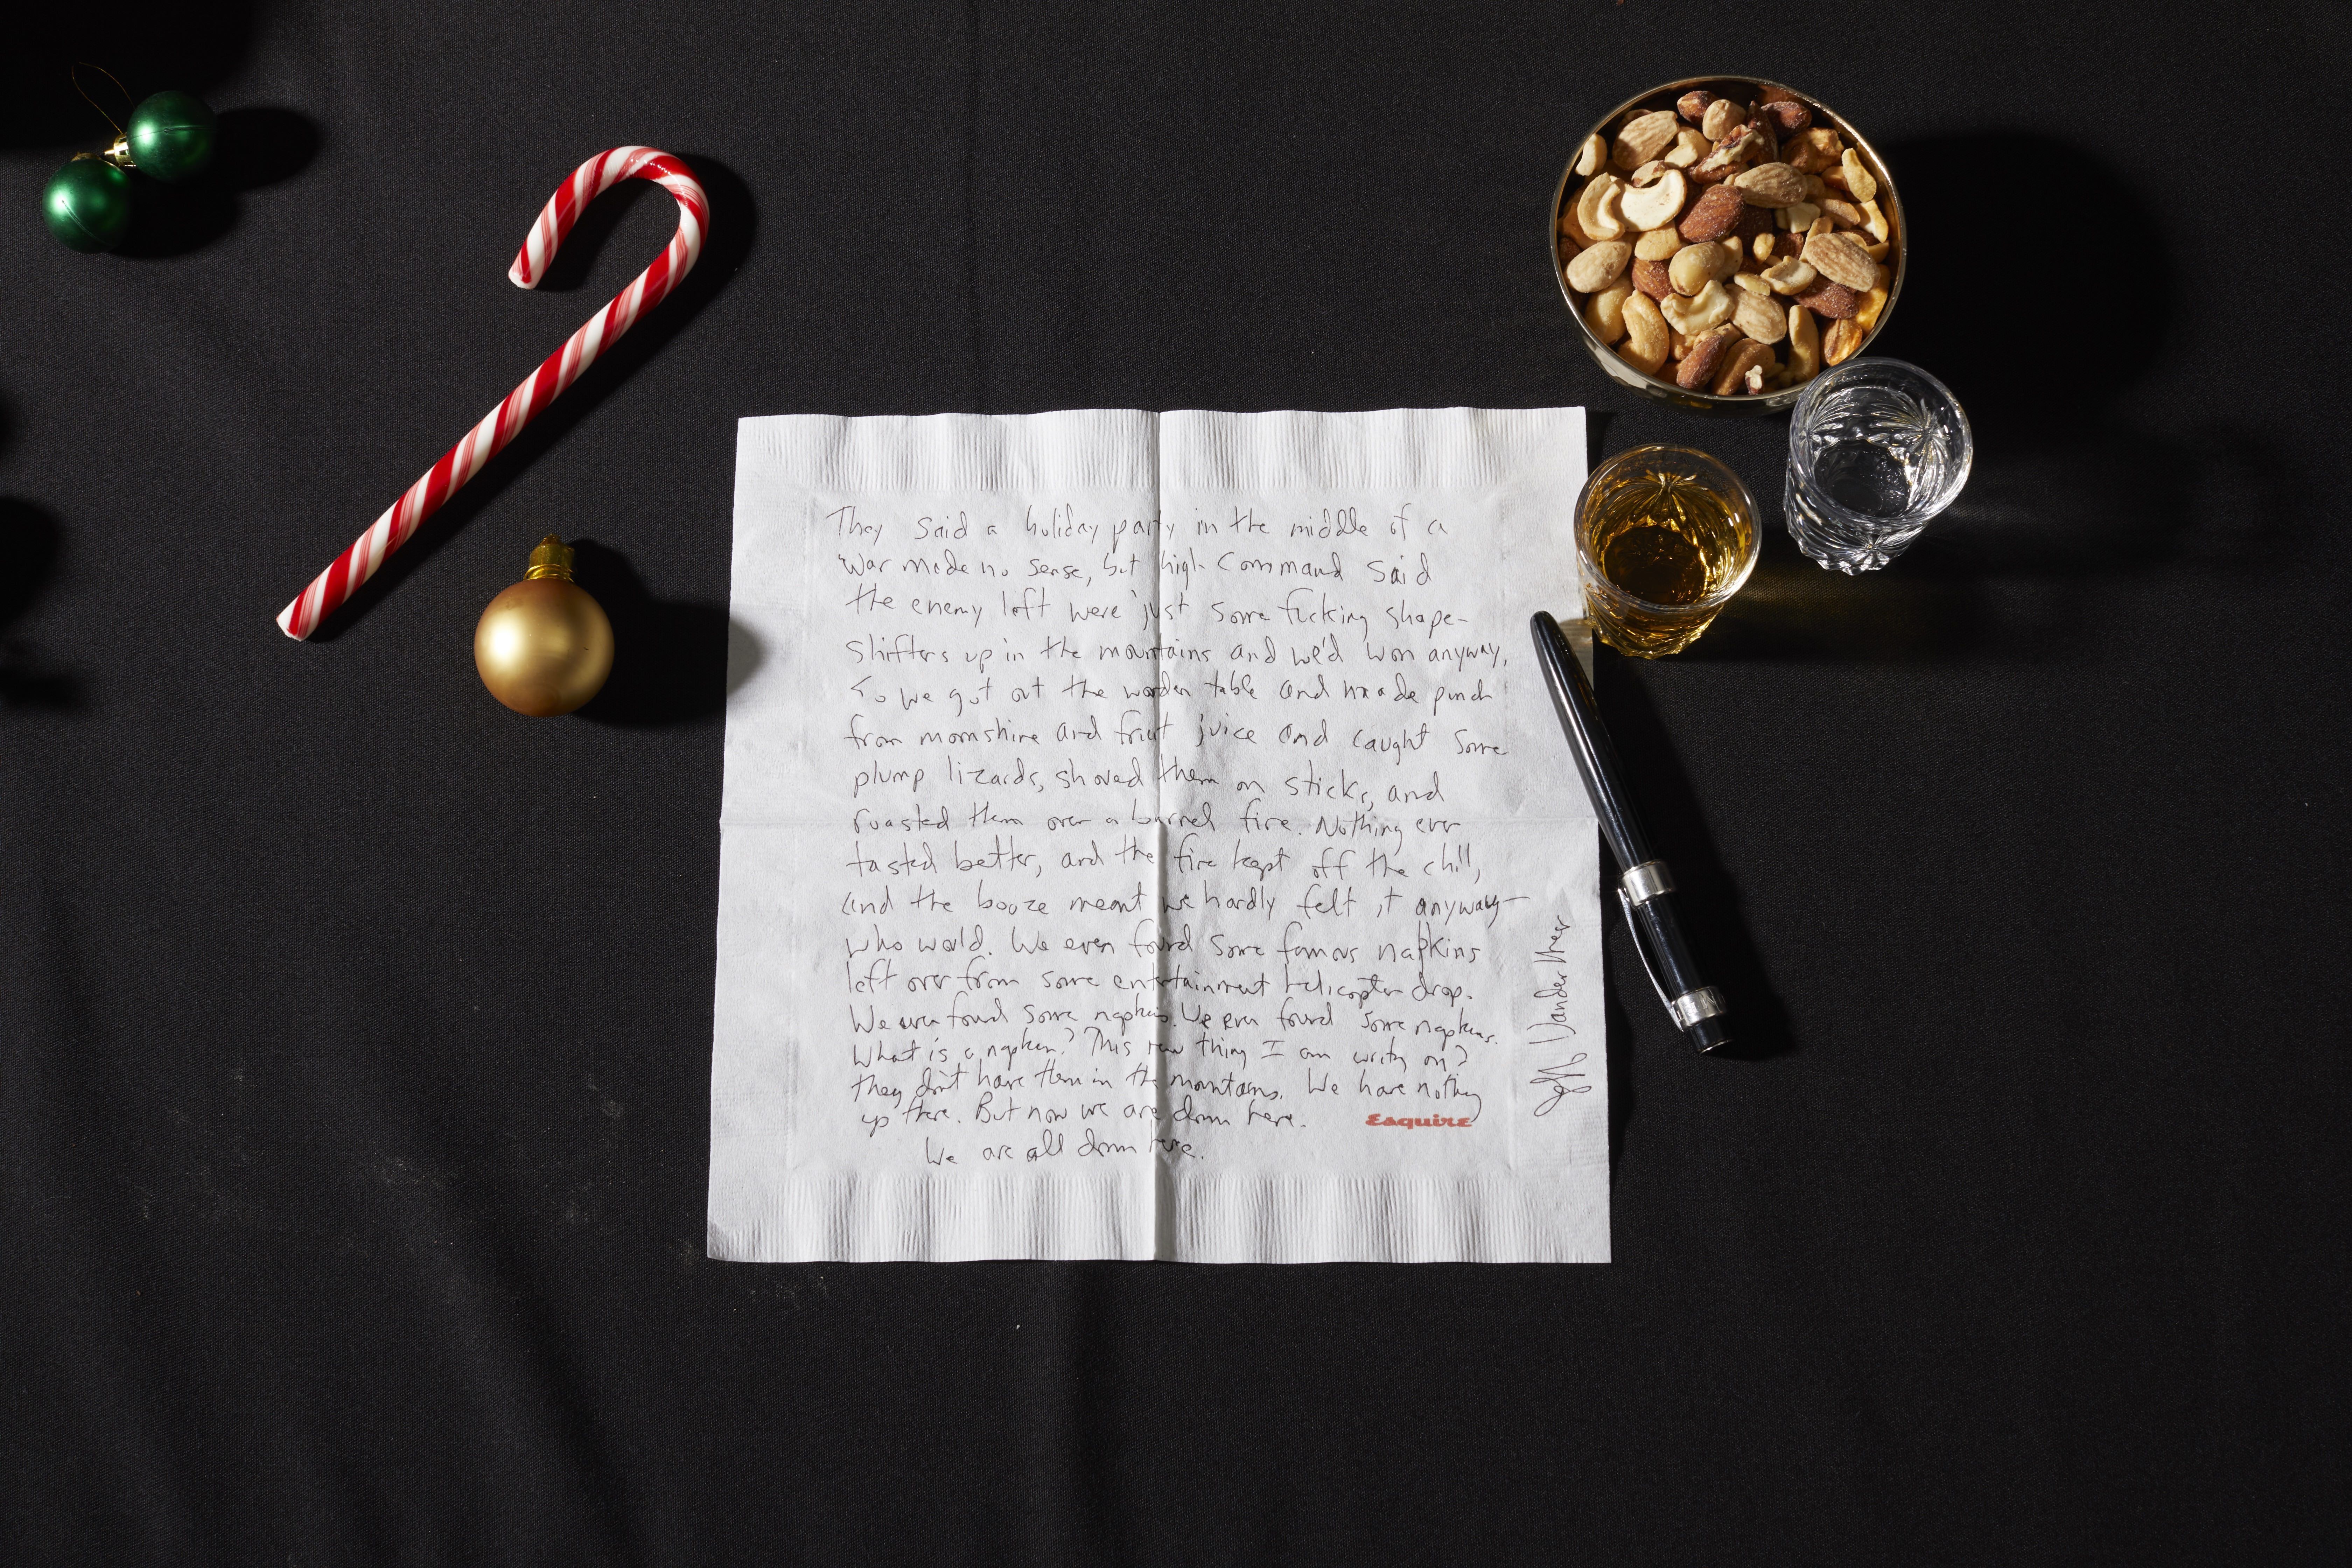 They said a holiday party in the middle of a
war made no sense, but high command said
the enemy left were just some fucking shape-
shifters up in the mountains and we'd won anyway,
So we got out the wooden table and made punch
from moonshine and fruit juice and caught some
plump lizards, shoved them on sticks, and
roasted them over a barrel fire. Nothing ever
tasted better, and the fire kept off the chill,
and the booze meant we hardly felt it anyway—
who would. We even found some famous napkins
left over from some entertainment helicopter drop.
We even found some napkins. We even found some napkins.
What is a napkin? This raw thing I am writing on?
They don't have them in the mountains. We have nothing
up there. But now we are down here.
Esquire
We are all down here.
Jeff VanderMeer